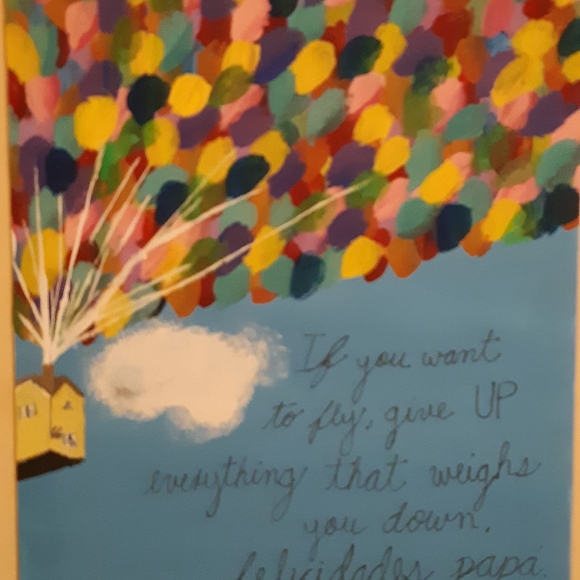 If you want
to fly, give UP
everything that weighs
you down.
felicidades papá